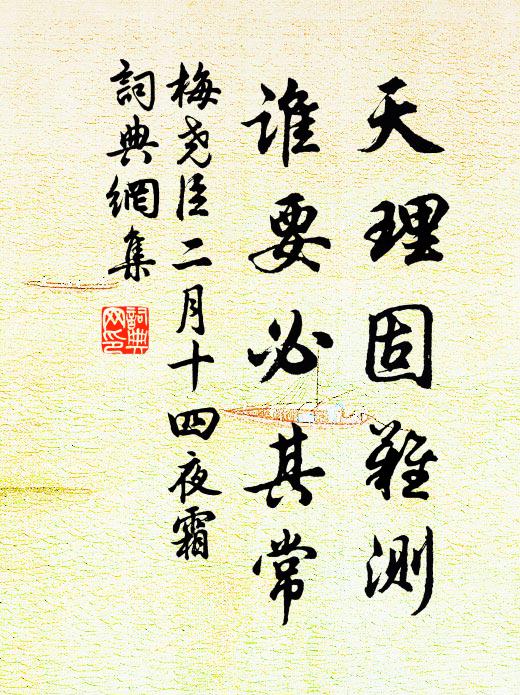 天理固難測
誰要必其常
梅堯臣二月十四夜霜
詞典網集
詞典
网印